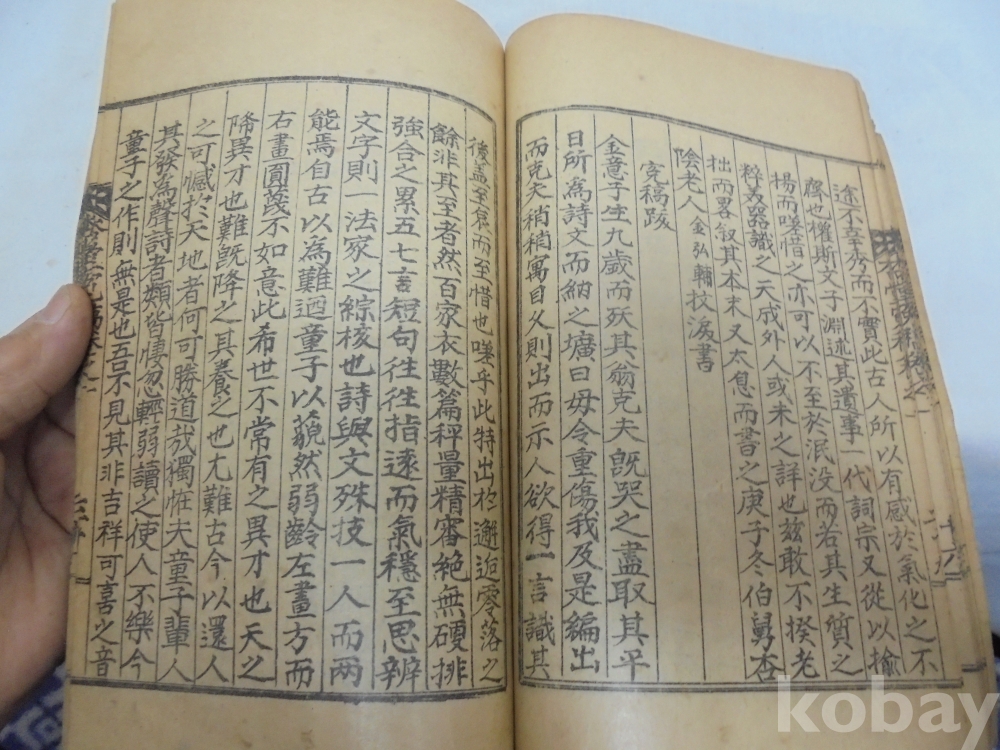 途不幸秀而不實此古人所以有感於氣化之不
齊也槎斯文子淵述其遺事一代詞宗又從以揄
揚而嗟惜之亦可以不至於泯没而若其生質之
粹英器識之天成外人或未之詳也玆敢不揆老
拙而畧叙其本末又太息而書之庚子冬伯舅杏
陰老人金弘輔抆淚書
究稿跋
金意子生九歲而殀其翁克夫旣哭之盡取其平
日所爲詩文而納之壙曰毋令重傷我及是編出
而克夫稍稍寓目父則出而示人欲得一言識其
後盖至寃而至惜也嗟乎此特出扵邂逅零落之
餘非其至者然百家衣數篇秤量精審絶無硬排
強合之累五七言短句徃徃指遠而氣穩至思辨
文字則一法家之綜核也詩與文殊技一人而两
能焉自古以為難廼童子以藐然弱齡左畫方而
右畫圓蔑不如意此希世不常有之異才也天之
降異才也難旣降之其養之也尤難古今以還人
之可憾扵天地者何可勝道哉獨恠夫童子輩人
其發為聲詩者類皆悽忽輕弱讀之使人不樂今
童子之作則無是也吾不見其非吉祥可喜之音
kobay